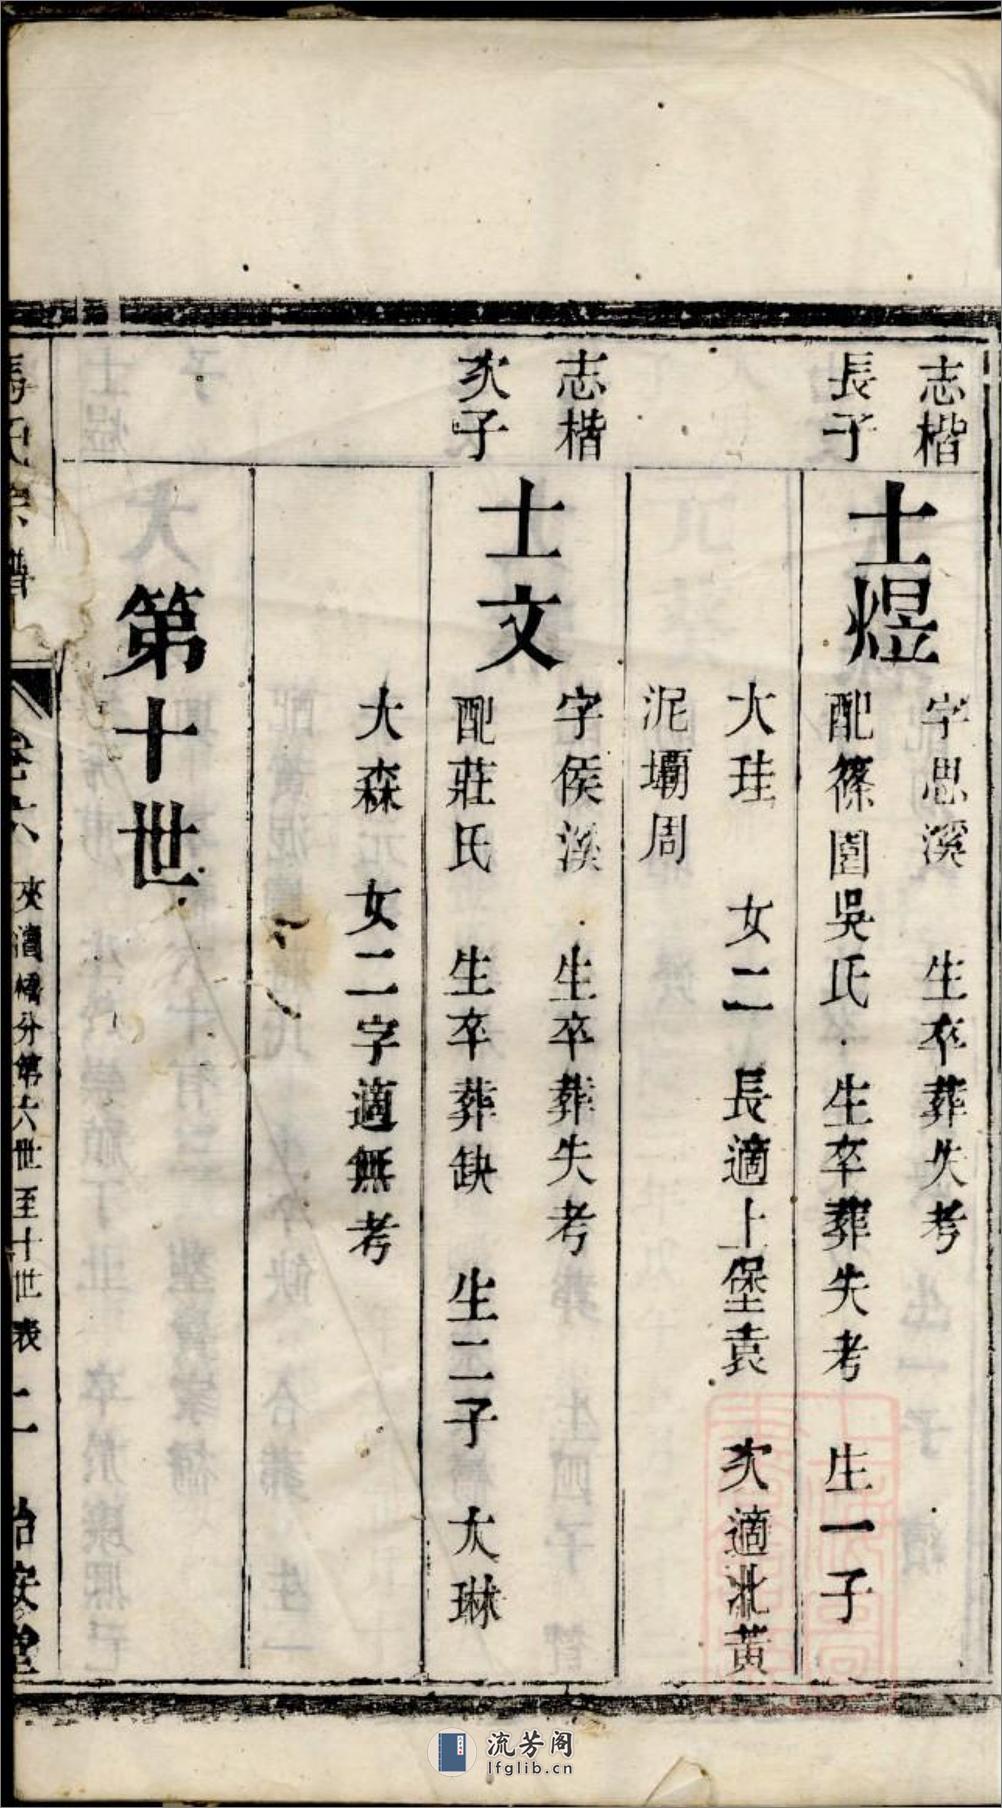 志楷
長子
士煜
字思溪　生卒葬失考
配篠園吳氏　生卒葬失考　生一子
大珪　女二　長適上堡袁　次適北黃
泥壩周
志楷
次子
士文
字侯溪　生卒葬失考
配莊氏　生卒葬缺　生二子　大琳
大森　女二字適無考
第十世
馮氏宗譜
卷六　夾瀆橋分第六世至十世表　二　治安堂
流芳阁
lfglib.cn